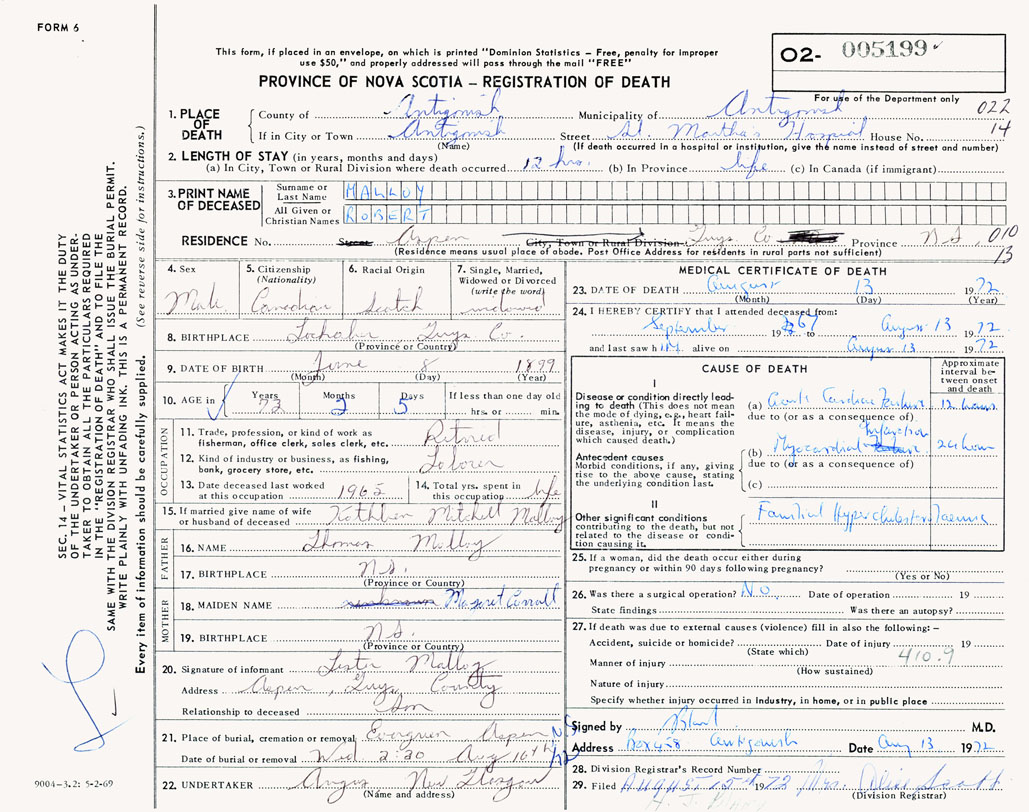 FORM 6
This form, if placed in an envelope, on which is printed "Dominion Statistics – Free, penalty for improper
use $50," and properly addressed will pass through the mail "FREE"
PROVINCE OF NOVA SCOTIA – REGISTRATION OF DEATH
02- 005199
For use of the Department only
022
14
1. PLACE OF DEATH
County of Antigonish Municipality of Antigonish
If in City or Town Antigonish Street St. Martha's Hospital House No.
(Name) (If death occurred in a hospital or institution, give the name instead of street and number)
2. LENGTH OF STAY (in years, months and days)
(a) In City, Town or Rural Division where death occurred 12 hrs. (b) In Province life (c) In Canada (if immigrant)
3. PRINT NAME OF DECEASED
Surname or Last Name MALLOY
All Given or Christian Names ROBERT
RESIDENCE No. Street Aspen City, Town or Rural Division Guys Co Province N S 010
(Residence means usual place of abode. Post Office Address for residents in rural parts not sufficient) 13
4. Sex Male
5. Citizenship (Nationality) Canadian
6. Racial Origin Scotch
7. Single, Married, Widowed or Divorced (write the word) widowed
8. BIRTHPLACE Lochaber, Guys Co.
(Province or Country)
9. DATE OF BIRTH June 8 1899
(Month) (Day) (Year)
10. AGE in Years 73 Months 2 Days 5 If less than one day old
hrs. or min.
OCCUPATION
11. Trade, profession, or kind of work as fisherman, office clerk, sales clerk, etc. Retired
12. Kind of industry or business, as fishing, bank, grocery store, etc. Laborer
13. Date deceased last worked at this occupation 1965
14. Total yrs. spent in this occupation life
15. If married give name of wife or husband of deceased Kathleen Mitchell Malloy
FATHER
16. NAME Thomas Malloy
17. BIRTHPLACE N.S.
(Province or Country)
MOTHER
18. MAIDEN NAME unknown Margaret
19. BIRTHPLACE N.S.
(Province or Country)
20. Signature of informant Lester Malloy
Address Aspen, Guys County
Relationship to deceased Son
21. Place of burial, cremation or removal Evergreen Aspen N S
Date of burial or removal Wed 2:30 Aug 16th /72
22. UNDERTAKER Angus New Glasgow
(Name and address)
MEDICAL CERTIFICATE OF DEATH
23. DATE OF DEATH August 13 1972
(Month) (Day) (Year)
24. I HEREBY CERTIFY that I attended deceased from:
September 1967 to August 13 1972
and last saw him alive on August 13 1972
CAUSE OF DEATH
Approximate interval between onset and death
I
Disease or condition directly leading to death (This does not mean the mode of dying, e.g., heart failure, asthenia, etc. It means the disease, injury, or complication which caused death.)
(a) Acute Cardiac Failure 12 hours
due to (or as a consequence of)
Infarction
(b) Myocardial 24 hour
due to (or as a consequence of)
(c)
Antecedent causes
Morbid conditions, if any, giving rise to the above cause, stating the underlying condition last.
II
Other significant conditions contributing to the death, but not related to the disease or condition causing it.
Familial Hypercholesterolaemia
25. If a woman, did the death occur either during
pregnancy or within 90 days following pregnancy?
(Yes or No)
26. Was there a surgical operation? NO Date of operation 19
State findings Was there an autopsy?
27. If death was due to external causes (violence) fill in also the following: –
Accident, suicide or homicide? Date of injury 19
(State which) 410.9
Manner of injury
(How sustained)
Nature of injury
Specify whether injury occurred in industry, in home, or in public place
Signed by M.D.
Address Box 458 Antigonish Date Aug 13 1972
28. Division Registrar's Record Number
29. Filed AUGUST 15th 1972 Mrs. Olive Scott
(Division Registrar)
SEC. 14 – VITAL STATISTICS ACT MAKES IT THE DUTY
OF THE UNDERTAKER OR PERSON ACTING AS UNDER-
TAKER TO OBTAIN ALL THE PARTICULARS REQUIRED
IN THE "REGISTRATION OF DEATH" AND TO FILE THE
SAME WITH THE DIVISION REGISTRAR WHO SHALL ISSUE THE BURIAL PERMIT.
WRITE PLAINLY WITH UNFADING INK. THIS IS A PERMANENT RECORD.
Every item of information should be carefully supplied. (See reverse side for instructions.)
9004–3.2: 5-2-69